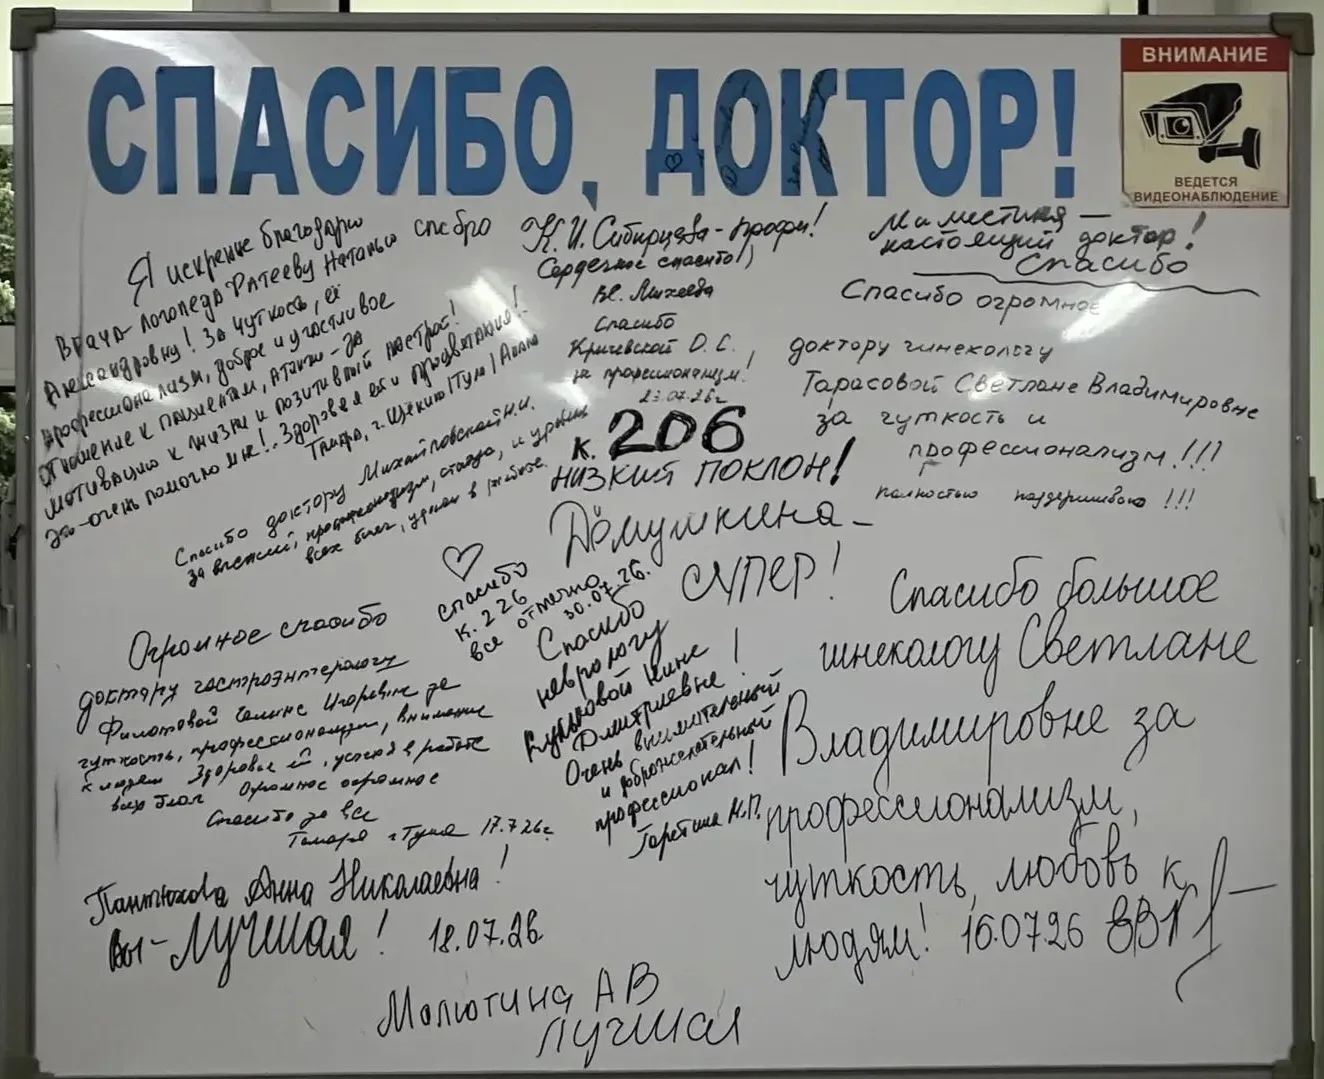 СПАСИБО, ДОКТОР!
ВНИМАНИЕ
ВЕДЕТСЯ
ВИДЕОНАБЛЮДЕНИЕ
Я искренне благодарю
врача-логопеда Фатееву Наталью
Александровну! За чуткость, её
профессионализм, доброе и участливое
отношение к пациентам, а также - за
мотивацию к жизни и позитивный настрой!
Это-очень помогло мне! Здоровья ей и процветания!!
г. Щёкино/Тула/
спсбро
К.И. Сибирцева-профи!
Сердечное спасибо!,
Вс. Михеева
Спасибо
Кричевской О.С.,
за профессионализм!
23.07.26г
к. 206
НИЗКИЙ ПОКЛОН!
Домушкина-
СУПЕР!
настоящий доктор!
Спасибо
Спасибо огромное
доктору гинекологу
Тарасовой Светлане Владимировне
за чуткость и
профессионализм!!!
полностью поддерживаю!!!
Спасибо доктору Михайловской Н.И.
за
всех благ, удачи в работе.
спасибо
к. 226
все отлично
30.07.26.
Огромное спасибо
доктару гастроэнтерологу
Филатовой Галине Игоревне за
чуткость, профессионализм, внимание
к людям Здоровья ей, успехов в работе
всех благ Огромное огромное
Спасибо за все
Тамара г Тула 17.7.26г.
Спасибо
неврологу
Нине
Дмитриевне!
Очень внимательный
и доброжелательный
профессионал!
Н.П.
Спасибо большое
гинекологу Светлане
Владимировне за
профессионализм,
чуткость, любовь к
людям! 16.07.26
Пантюхова Анна Николаевна!
Вы-Лучшая! 18.07.26
Малютина АВ
лучшая